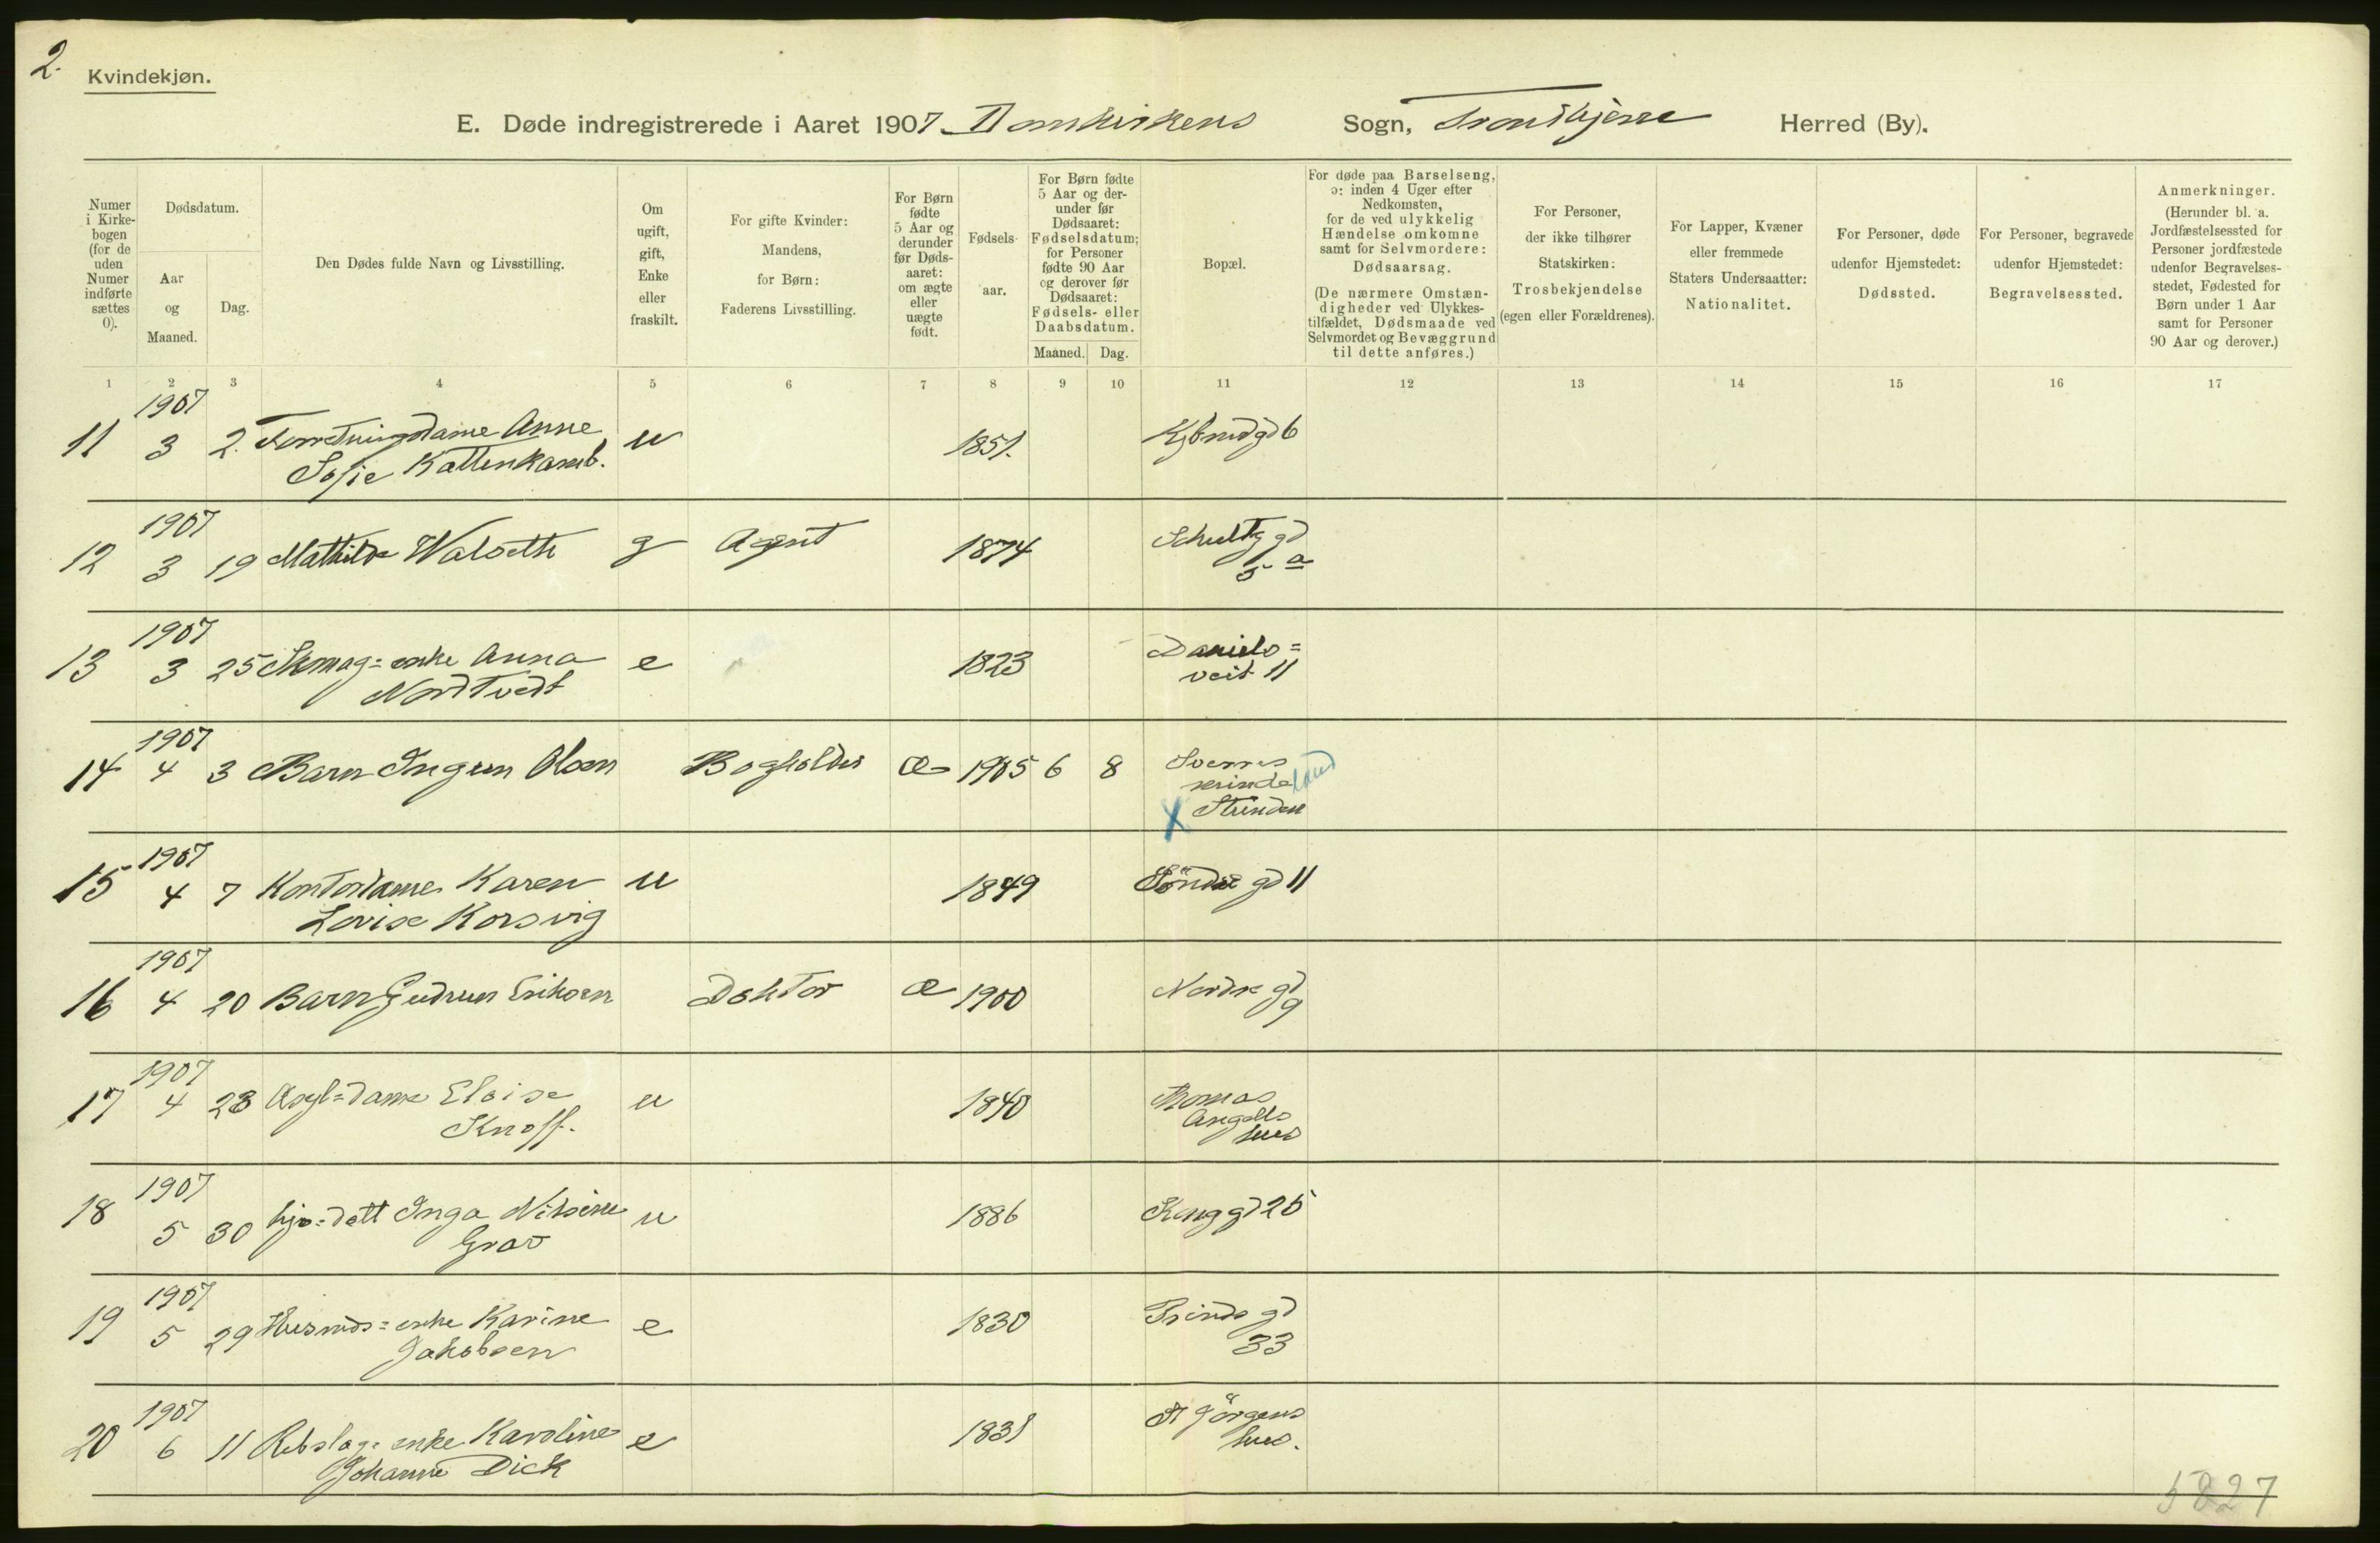 2.
Kvindekjøn.
E. Døde indregistrerede i Aaret 1907 Domkirkens Sogn, Trondhjem Herred (By).
Numer i Kirkebogen (for de uden Numer indførte sættes 0).
Dødsdatum.
Aar og Maaned.
Dag.
Den Dødes fulde Navn og Livsstilling.
Om ugift, gift, Enke eller fraskilt.
For gifte Kvinder: Mandens, for Børn: Faderens Livsstilling.
For Børn fødte 5 Aar og derunder før Dødsaaret: om ægte eller uægte født.
Fødselsaar.
For Børn fødte 5 Aar og derunder før Dødsaaret: Fødselsdatum; for Personer fødte 90 Aar og derover før Dødsaaret: Fødsels- eller Daabsdatum.
Maaned. Dag.
Bopæl.
For døde paa Barselseng, ɔ: inden 4 Uger efter Nedkomsten, for de ved ulykkelig Hændelse omkomne samt for Selvmordere: Dødsaarsag.
(De nærmere Omstændigheder ved Ulykkestilfældet, Dødsmaade ved Selvmordet og Bevæggrund til dette anføres.)
For Personer, der ikke tilhører Statskirken: Trosbekjendelse (egen eller Forældrenes).
For Lapper, Kvæner eller fremmede Staters Undersaatter: Nationalitet.
For Personer, døde udenfor Hjemstedet: Dødssted.
For Personer, begravede udenfor Hjemstedet: Begravelsessted.
Anmerkninger.
(Herunder bl. a. Jordfæstelsessted for Personer jordfæstede udenfor Begravelsesstedet, Fødested for Børn under 1 Aar samt for Personer 90 Aar og derover.)
1 2 3 4 5 6 7 8 9 10 11 12 13 14 15 16 17
1907
11 3 2. Forretningsdame Anne u 1851. Kjbmdgd 6
Sofie Kattenkamb.
1907
12 3 19 Mathilde Walseth g Agent 1874 Schultz gd
5 a
1907
13 3 25 Skmag= enke Anna e 1823 Daniels=
Nordtvedt veit 11
1907
14 4 3 Barn Ingun Olsen Bogholder Æ 1905 6 8 Sverres
minde land
X Stinden
1907
15 4 7 Kontordame Karen u 1849 Söndre gd 11
Lovise Korsvig
1907
16 4 20 Barn Gudrun Eriksen Doktor Æ 1900 Nordre gd
9
1907
17 4 23 Asyl=dame Eloise u 1840 Thomas
Knoff. Angells
hus
1907
18 5 30 hjv=datt Inga Nilsine u 1886 Konggd 25
Grav
1907
19 5 29 Husmds= enke Karine e 1830 Prinds gd
Jakobsen 33
1907
20 6 11 Rebslag. enke Karoline e 1831 St Jörgens
Johanne Dick hus.
5827